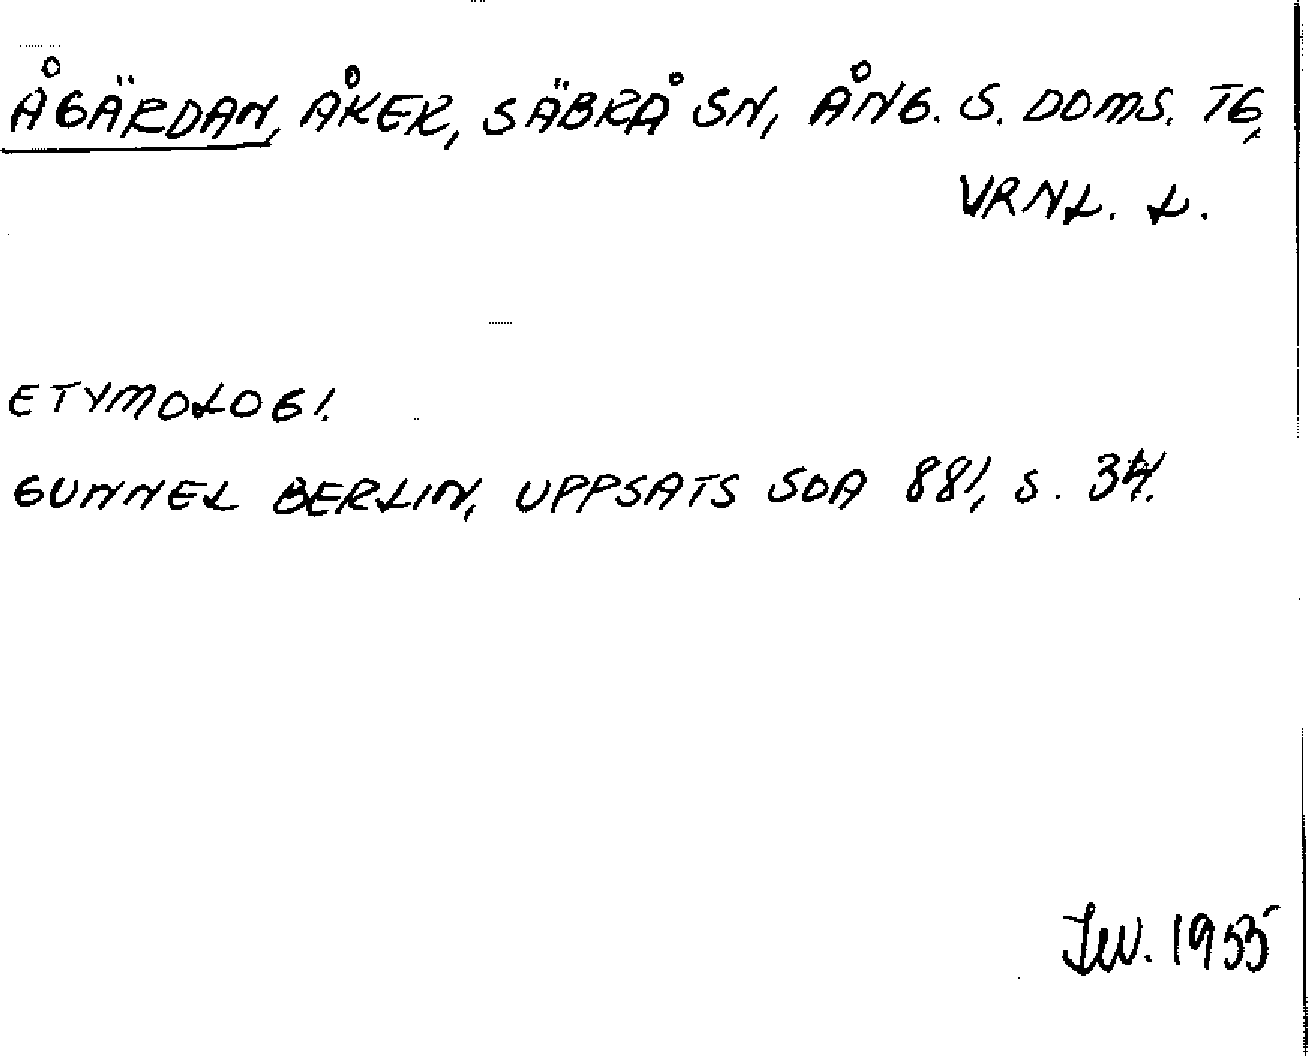 ÅGÄRDAN, ÅKER, SÄBRÅ SN, ÅNG. S. DOMS. TG,
VRNL. L.
ETYMOLOGI.
GUNNEL BERLIN, UPPSATS SOA 881, S. 34.
Inv. 1955